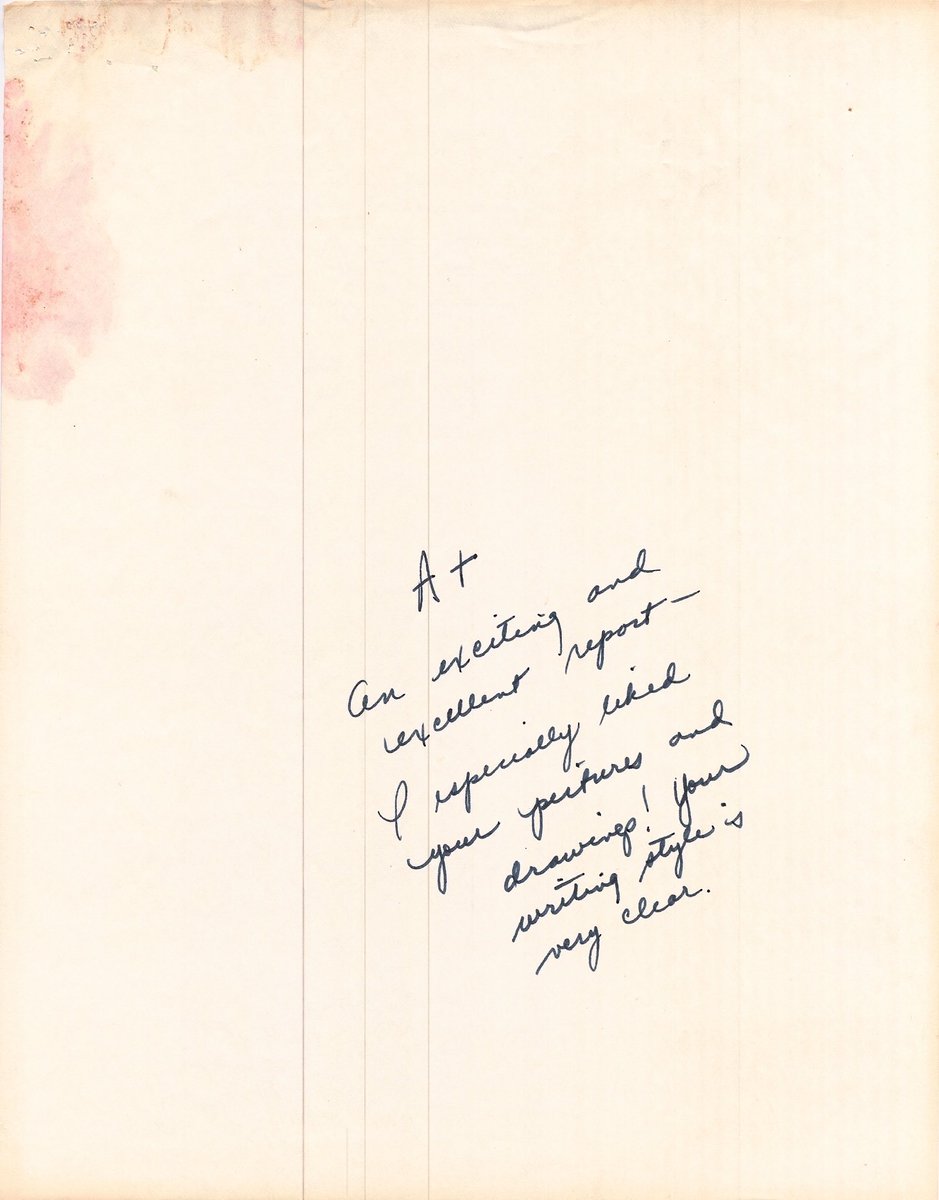 A+
An exciting and
excellent report—
I especially liked
your pictures and
drawings! Your
writing style is
very clear.